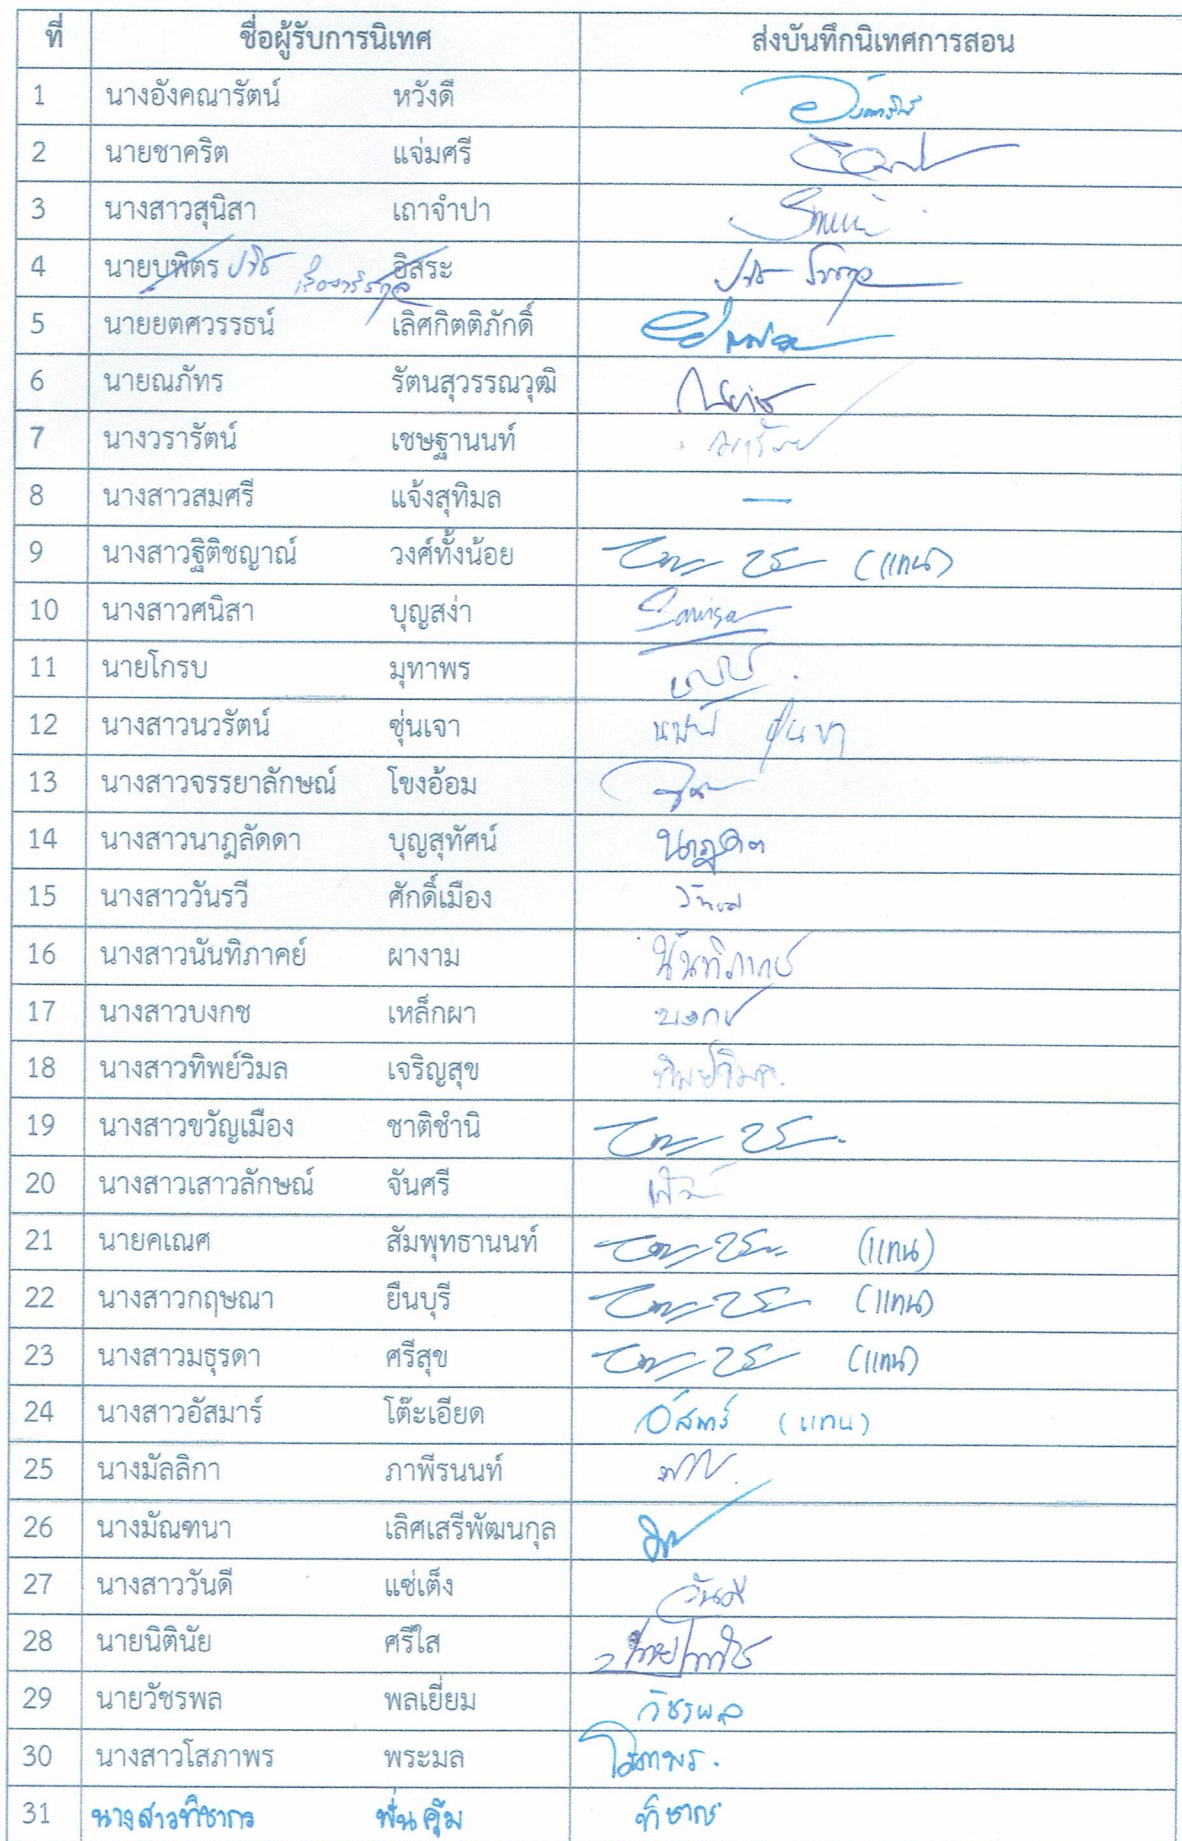 ที่ ชื่อผู้รับการนิเทศ ส่งบันทึกนิเทศการสอน
1 นางอังคณารัตน์ หวังดี
2 นายชาคริต แจ่มศรี
3 นางสาวสุนิสา เถาจำปา
4 นายบุพิตร อิสระ
5 นายยตศวรรธน์ เลิศกิตติภักดิ์
6 นายณภัทร รัตนสุวรรณวุฒิ
7 นางวรารัตน์ เชษฐานนท์
8 นางสาวสมศรี แจ้งสุทิมล —
9 นางสาวฐิติชญาณ์ วงศ์ทั้งน้อย (แทน)
10 นางสาวศนิสา บุญสง่า Sanisa
11 นายโกรบ มุทาพร
12 นางสาวนวรัตน์ ชุ่นเจา
13 นางสาวจรรยาลักษณ์ โขงอ้อม
14 นางสาวนาฎลัดดา บุญสุทัศน์
15 นางสาววันรวี ศักดิ์เมือง
16 นางสาวนันทิภาคย์ ผางาม นันทิภาคย์
17 นางสาวบงกช เหล็กผา บงกช
18 นางสาวทิพย์วิมล เจริญสุข ทิพย์วิมล
19 นางสาวขวัญเมือง ชาติชำนิ
20 นางสาวเสาวลักษณ์ จันศรี
21 นายคเณศ สัมพุทธานนท์ (แทน)
22 นางสาวกฤษณา ยืนบุรี (แทน)
23 นางสาวมธุรดา ศรีสุข (แทน)
24 นางสาวอัสมาร์ โต๊ะเอียด อัสมาร์ (แทน)
25 นางมัลลิกา ภาพีรนนท์
26 นางมัณฑนา เลิศเสรีพัฒนกุล
27 นางสาววันดี แซ่เต็ง วันดี
28 นายนิตินัย ศรีใส
29 นายวัชรพล พลเยี่ยม วัชรพล
30 นางสาวโสภาพร พระมล โสภาพร.
31 นางสาวทิชากร พ่นคุ้ม ทิชากร